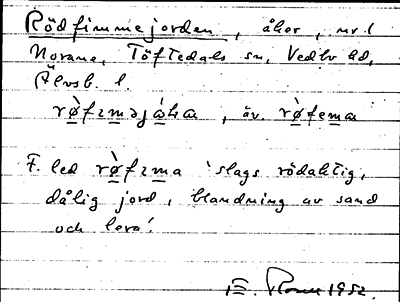 Rödfimmejorden, åker, nr 1
Norane, Töftedals sn, Vedbo hd,
Älvsb. l.
rø̀fɪməjo̱ɽa, äv. rø̀fema
F. led rø̀fɪma 'slags rödaktig,
dålig jord, blandning av sand
och lera'.
1952.